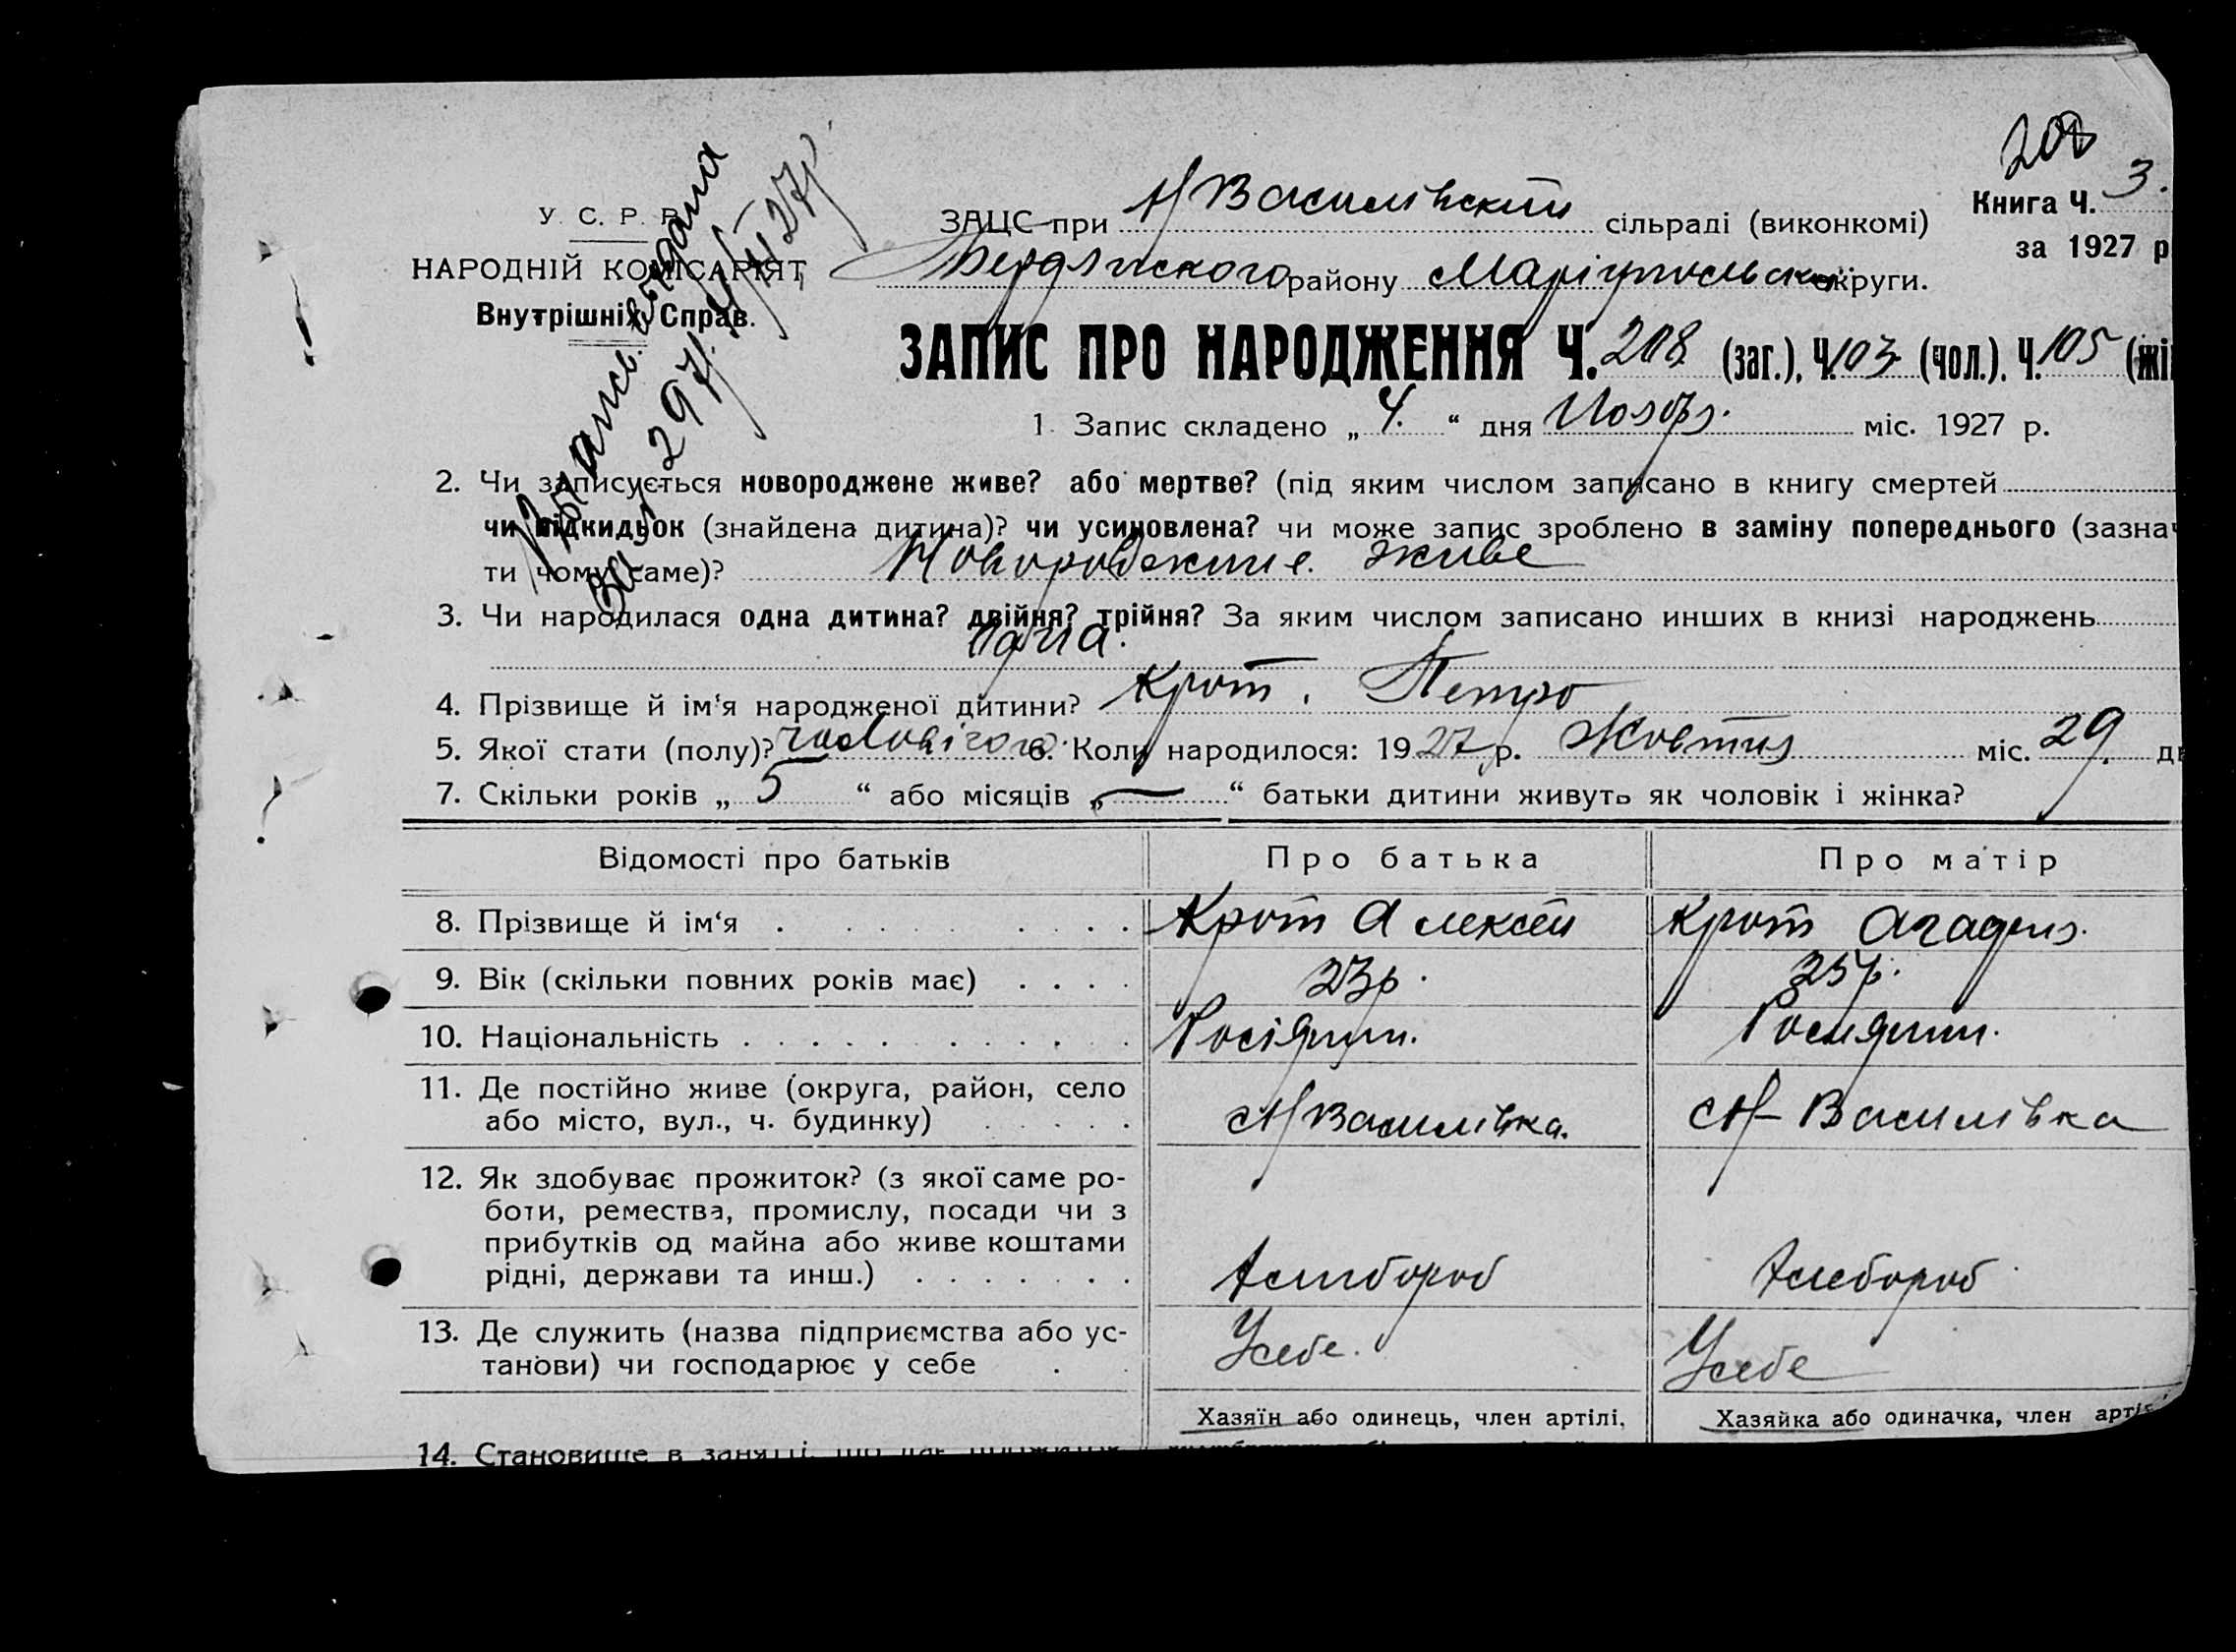 208
Книга Ч. 3.
за 1927 р
У. С. Р. Р.
НАРОДНІЙ КОМІСАРІЯТ
Внутрішніх Справ.
ЗАЦС при Н Василівскій сільраді (виконкомі)
Бердянского району Маріупольськ округи.
ЗАПИС ПРО НАРОДЖЕННЯ Ч. 208 (заг.), Ч. 103 (чол.), Ч. 105 (жі
1. Запис складено „ 4. “ дня Нояб. міс. 1927 р.
2. Чи записується новороджене живе? або мертве? (під яким числом записано в книгу смертей
чи підкидьок (знайдена дитина)? чи усиновлена? чи може запис зроблено в заміну попереднього (зазнач
ти чому саме)? Новорождение. живе
3. Чи народилася одна дитина? двійня? трійня? За яким числом записано инших в книзі народжень
одна.
4. Прізвище й ім‘я народженої дитини? Крот. Петро
5. Якої стати (полу)? чоловічого 6. Коли народилося: 1927 р. Жовтня міс. 29. дн
7. Скільки років „ 5 “ або місяців „ — “ батьки дитини живуть як чоловік і жінка?
Відомості про батьків Про батька Про матір
8. Прізвище й ім‘я . . . . . . . . Крот Алексей Крот Агафия.
9. Вік (скільки повних років має) . . . . 23р. 25р.
10. Національність . . . . . . . . . . . Росіянин. Росиянин.
11. Де постійно живе (округа, район, село
або місто, вул., ч. будинку) . . . . . Н Василівка. Н-Василівка
12. Як здобуває прожиток? (з якої саме ро-
боти, ремества, промислу, посади чи з
прибутків од майна або живе коштами
рідні, держави та инш.) . . . . . . . Хлибороб Хлебороб
13. Де служить (назва підприємства або ус-
танови) чи господарює у себе . Усебе. Усебе
Хазяїн або одинець, член артілі, Хазяйка або одиначка, член арті
14. Становище в занятті, що дає прожиток